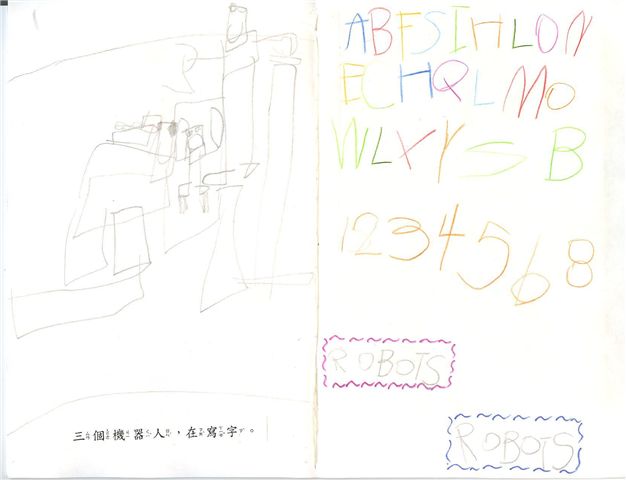 三個機器人，在寫字。
ABFSIHLON
ECHQLMO
WLXYSB
1234568
ROBOTS
ROBOTS